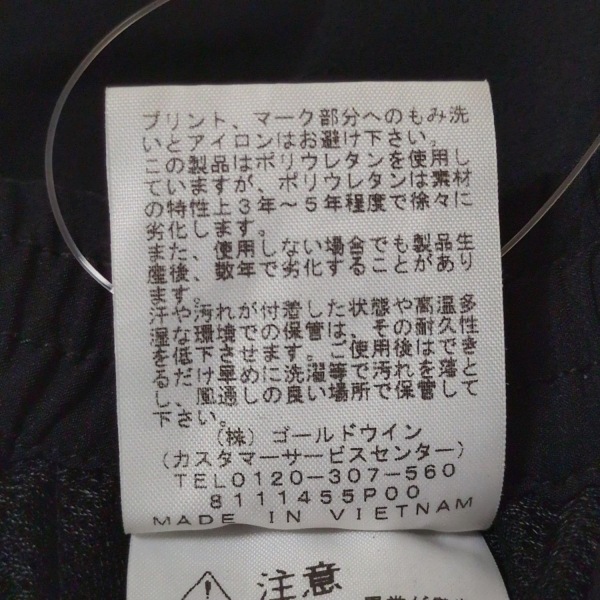 プリント、マーク部分へのもみ洗
いとアイロンはお避け下さい。
この製品はポリウレタンを使用し
ていますが、ポリウレタンは素材
の特性上3年～5年程度で徐々に
劣化します。
また、使用しない場合でも製品生
産後、数年で劣化することがあり
ます。
汗や汚れが付着した状態や高温多
湿な環境での保管は、その耐久性
を低下させます。ご使用後はでき
るだけ早めに洗濯等で汚れを落と
し、風通しの良い場所で保管して
下さい。
(株) ゴールドウイン
(カスタマーサービスセンター)
TEL0120-307-560
8111455P00
MADE IN VIETNAM
注意